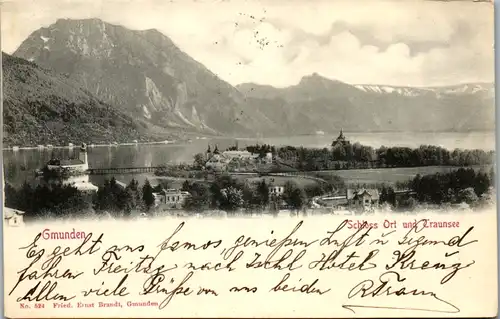 Gmunden
Schloss Ort und Traunsee
Es geht uns famos, genießen Luft u. Sonne
fahren Freitag nach Ischl Hotel Kreuz
Allen viele Grüße von uns beiden
No. 824 Fried. Ernst Brandt, Gmunden